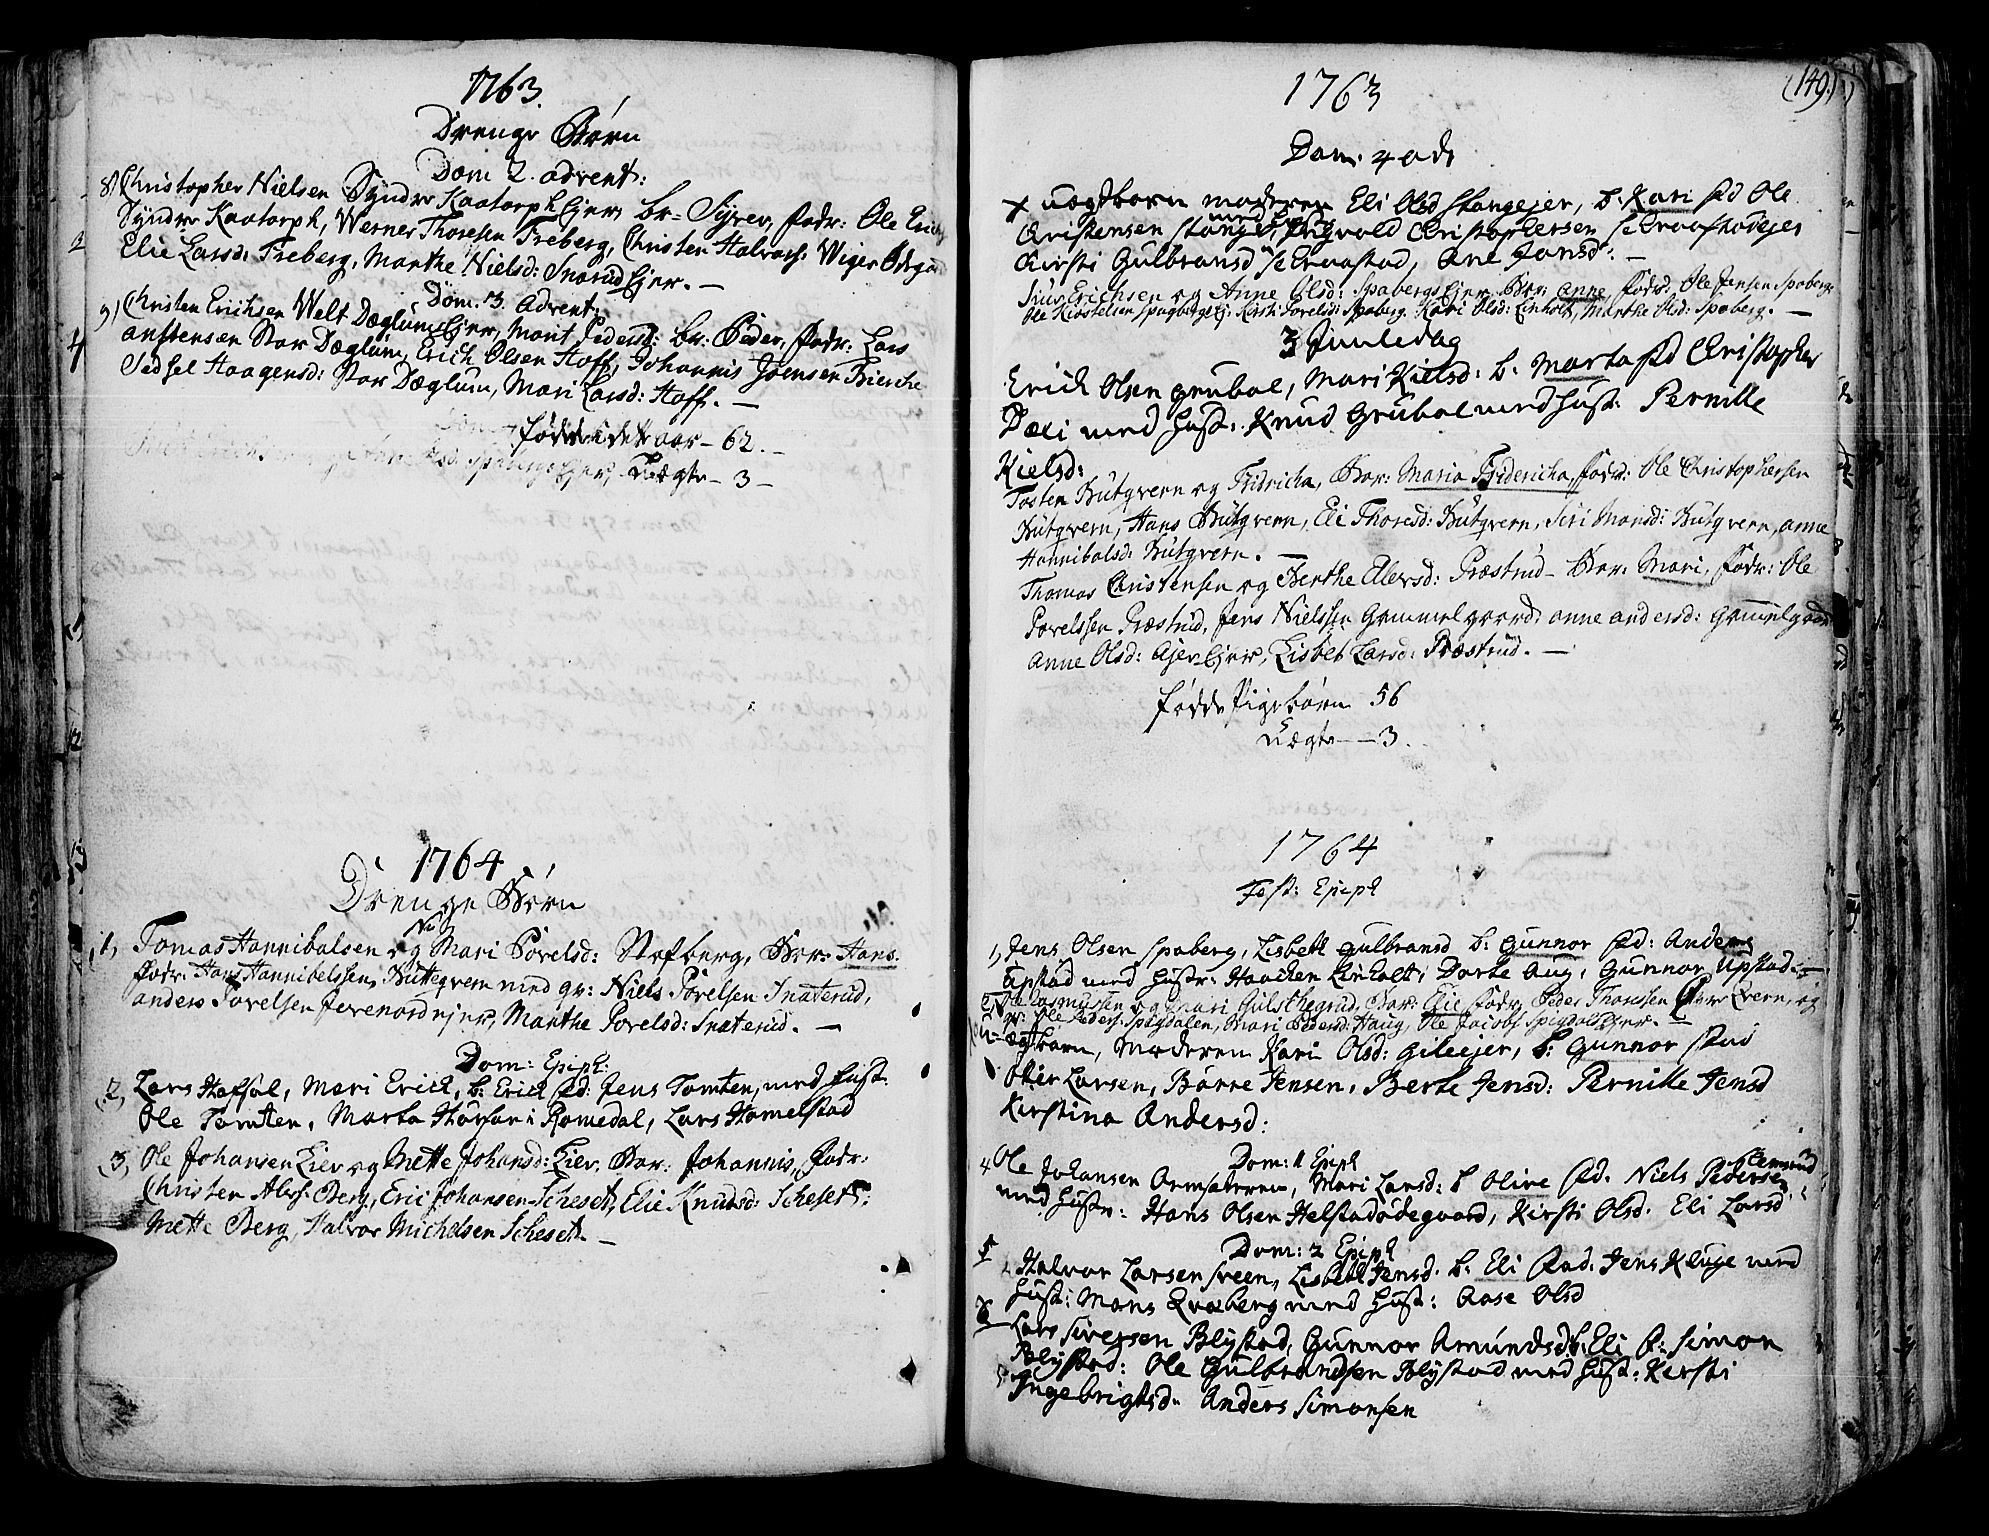 1763.
Drenge Børn
Dom 2. advent:
8) Christopher Nielsen Syndre Kaatorp Ejer, br= Syver, fadr: Ole Erichs
Syndre Kaatorph, Werner Thoresen Freberg, Christen Halvors: Wiger Ødegaard
Elie Larsd: Freberg, Marthe Nielsd: Snarud Ejer. —
Dom. 3. Advent:
9) Christen Erichsen Welt Dæglum Ejer, Morit Pedersd: br: Peder, fadr: Lars
anstensen Stor Dæglum, Erich Olsen Hoff, Johannis Joensen Bierche
Sidsel Haagensd: Stor Dæglum, Mari Larsd: Hoff. —
fødde i dette aar – 62. –
Uægte – 3 –
1764
Drenge Børn
1, Tomas Hannibalsen og Mari Povelsd: Stafberg, Bar: Hans.
fadr: Hans Hannibelssen Kuttegvern med qv: Niels Povelsen Snaterud,
anders Povelsen ejer, Marthe Povelsd: Snaterud. —
Dom: Epiph:
2, Lars Hafsal, Mari Erich, b: Erich fad: Jens Tomten, med Hust
Ole Tomten, Marta i Romedal, Lars Hamelstad
3, Ole Johansen Lier og Mette Johansd: Lier, Bar: Johannis, fadr:
Christen Alexs: Berg, Eric Johansen Scheset, Elie Knudsd: Scheset:
Mette Berg, Halvor Michelsen Scheset. —
(149)
1763
Dom. 4 adv
x uægtbarn moderen Eli Olsd Stangejer, b: Kari fad Ole
Christensen Stange, Christophersen
Kirsti Gulbransd Ane Jansd: —
Siver Erichsen og Anne Olsd: Spabergs Ejer, Bar: anne, fadr: Ole Jensen Spaberg
Ole Kiostelsen Spagberg Ej: Kirsti Povelsd: Spaberg. Kari Olsd: Linholt, Marthe Olsd: Spaberg. —
3 Juuledag
Erich Olsen grubal, Mari Kielsd: b. Marta fad Christopher
Dæli med Hust. Knud Grubal med Hust: Pernille
Kielsd:
Tosten Kutqvern og Fridricha, Bar: Maria Fridericha, fadr: Ole Christophersen
Kutqvern, Hans Kutqvern, Eli Thoresd: Kutqvern, Siri Monsd: Kutqvern, anne
Hannibalsd: Kutqvern. —
Thomas Christensen og Berthe Elersd: Præstrud – Bar: Mari, fadr: Ole
Povelssen Præstrud, Jens Nielssen Gammelgaard, anne andersd: Gammelgaard
Anne Olsd: Ejer, Lisbet Larsd: Præstrud. —
fødde Pigebørn 56
Uægte — 3.
1764
Fest: Epiph
1, Jens Olsen Spaberg, Lisbeth gulbransd b: Gunnor fad: Anders
Upstad med Hustr: Haachen Linholt, Dorte Aug, Gunnor Upstad: —
Rasmussen og Mari Gulsthegrud, Bar: Elie fadr Peder Thoressen Qvern, og
qv: Ole Peders: Spigdalen, Mari Pedersd: Haug, Ole Jacobs Spigdals Ejer. —
Uægtbarn, Moderen Kari Olsd: gileejer, b: Gunnor fad
Larsen, Børre Jensen, Berte Jensd: Pernille Jensd
Kirstina Andersd:
Dom: 1 Epiph
4 Ole Johansen Mari Larsd: b Olive fad. Niels Pedersen
med Hustr: Hans Olsen Helstadødegaard, Kirsti Olsd. Eli Larsd
Dom: 2 Epiph
Halvor Larsen Sveen, Lisbeth Jensd. b: Eli fad. Jens Kluge med
Hust: Mons Qvæberg med Hust: Aase Olsd
Lars Siversen Blystad, Gunnor Amundsd b. Eli f: Simon
Blystad: Ole Gulbrandsen Blystad med Hust: Kersti
Ingebrigtsd: Anders Simonsen